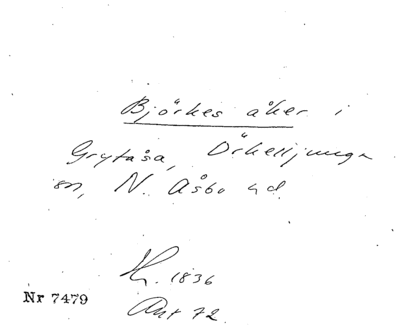 Björkes åker i
Grytåsa, Örkelljunga
sn, N. Åsbo hd.
H. 1836
Nr 7479
Ant 72.